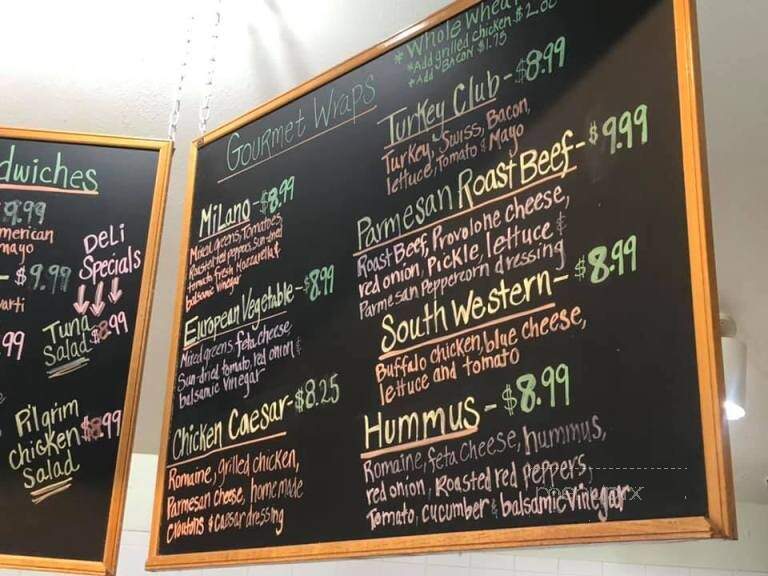 dwiches
9.99
merican
mayo
$9.99
varti
99
Deli
Specials
Tuna $8.99
Salad
Pilgrim $8.99
Chicken
Salad
Gourmet Wraps
Milano - $8.99
Mixed greens, Tomatoes,
Roasted red peppers, sun-dried
tomato, fresh Mozzarella &
balsamic vinegar
European Vegetable - $8.99
Mixed greens, feta cheese,
Sun-dried tomato, red onion &
balsamic vinegar
Chicken Caesar - $8.25
Romaine, grilled chicken,
Parmesan cheese, homemade
Croutons & Caesar dressing
* Whole Wheat
* Add grilled chicken $2.00
* Add Bacon $1.75
Turkey Club - $8.99
Turkey, Swiss, Bacon,
lettuce, Tomato & Mayo
Parmesan Roast Beef - $9.99
Roast Beef, Provolone cheese,
red onion, Pickle, lettuce &
Parmesan Peppercorn dressing
South Western - $8.99
Buffalo chicken, blue cheese,
lettuce and tomato
Hummus - $8.99
Romaine, feta cheese, hummus,
red onion, Roasted red peppers,
Tomato, cucumber & balsamic vinegar